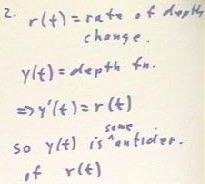 2. r(t) = rate of depth
change.
y(t) = depth fn.
⇒ y'(t) = r(t)
so y(t) is some antider.
of r(t)